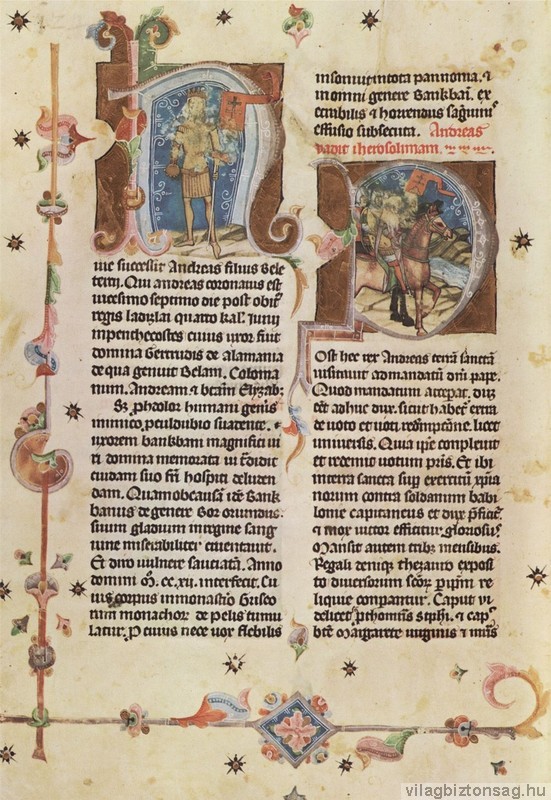 uic successit Andreas filius Bele
tercii. Qui andreas coronatus est
uicesimo septimo die post obitũ
regis ladizlai quarto kal. Iunii
in penthecostes cuius uxor fuit
domina Gertrudis de alamania
de qua genuit Belam. Coloma
num. Andream & beatam Elyzab;
humani generis
inimico
uxorem bankbani magnifici ui
ri domina memorata ui
cuidam suo hospiti deluden
dam. Bank
banus de genere Bor oriundus.
suum gladium in regine sang
uine miserabiliter cruentauit.
Et diro uulnere sauciatã. Anno
domini m̃. cc. xii. interfecit. Cu
ius corpus in monasterio Griseo
rum monachorum de pelis tumu
latur. Pro cuius nece uox flebilis
insonuit in tota pannonia. &
in omni genere Bankbani. ex
ecrabilis & horrendus sanguinis
effusio subsecuta. Andreas
uadit iherosolimam.
Post hec rex Andreas terrã sanctã
uisitauit ad mandatũ dñi pape.
Quod mandatum
adhuc dux.
de uoto et uoti redemptione. licet
uniuersis. Quia ipse compleuit
et redemit uotum patris. Et ibi
in terra sancta super exercitũ xp̃ia
norum contra soldanum babi
lonie capitaneus et dux preficit
& mox uictor efficitur gloriosus.
Mansit autem tribus mensibus.
Regali deniq; thezauro exposi
to diuersorum per re
lique conparantur. Caput ui
delicet prothomartiris stephani. & caput
beate Margarete uirginis & manus
vilagbiztonsag.hu